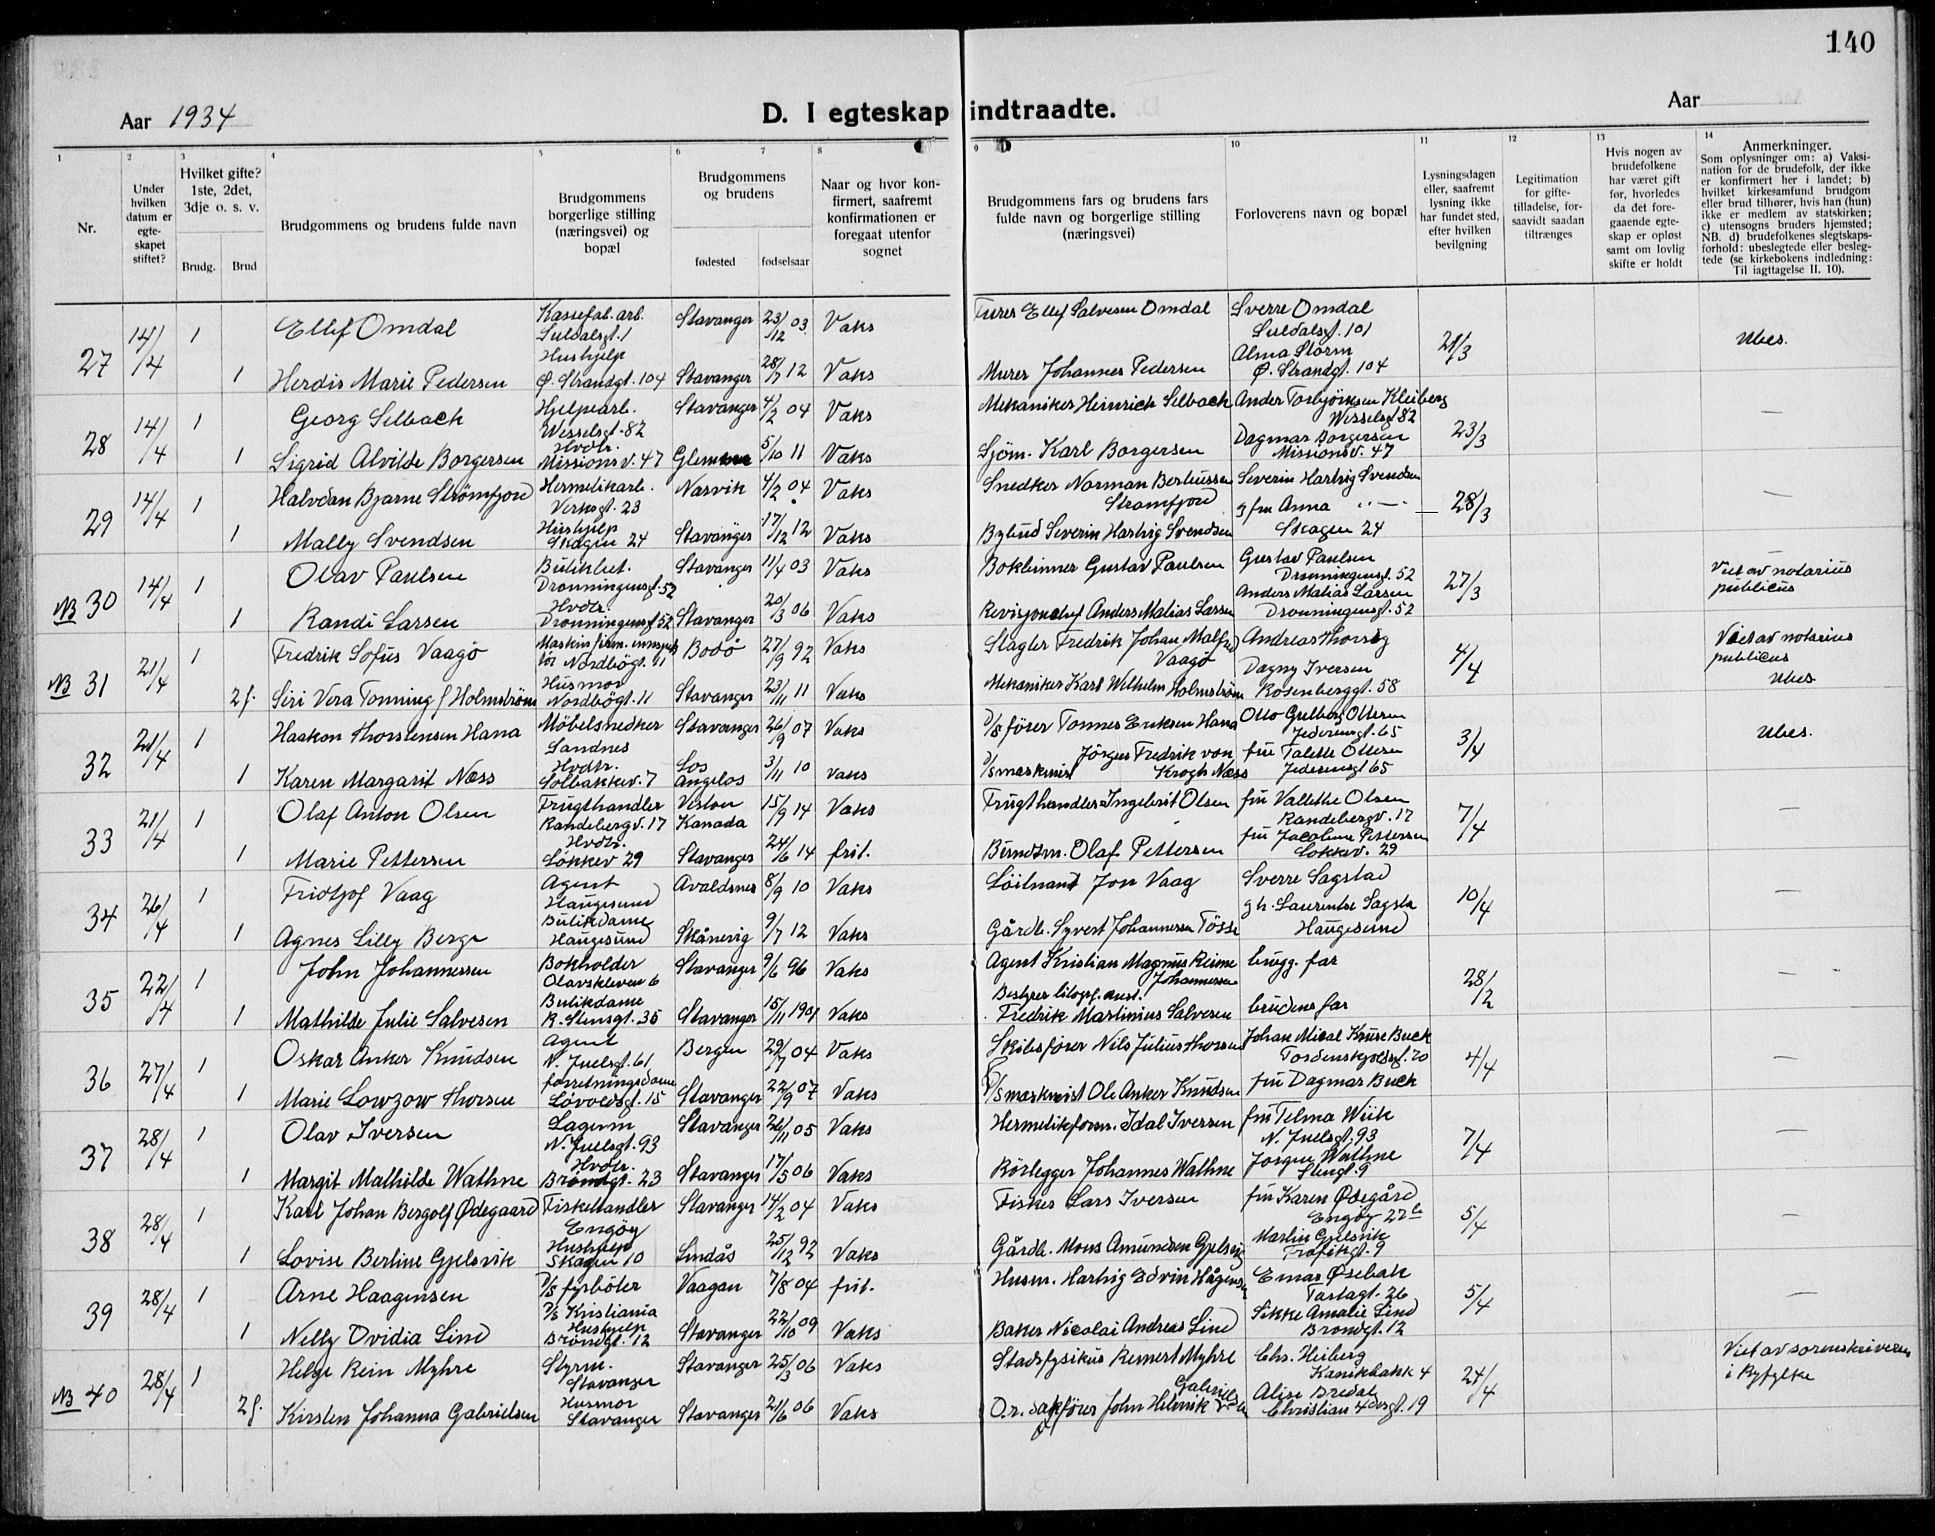 140
Aar 1934
D. I egteskap indtraadte.
Aar
1 2 3 4 5 6 7 8 9 10 11 12 13 14
Nr.
Under hvilken datum er egteskapet stiftet?
Hvilket gifte? 1ste, 2det, 3dje o. s. v.
Brudg. Brud
Brudgommens og brudens fulde navn
Brudgommens borgerlige stilling (næringsvei) og bopæl
Brudgommens og brudens
fødested fødselsaar
Naar og hvor konfirmert, saafremt konfirmationen er foregaat utenfor sognet
Brudgommens fars og brudens fars fulde navn og borgerlige stilling (næringsvei)
Forloverens navn og bopæl
Lysningsdagen eller, saafremt lysning ikke har fundet sted, efter hvilken bevilgning
Legitimation for giftetilladelse, forsaavidt saadan tiltrænges
Hvis nogen av brudefolkene har været gift før, hvorledes da det foregaaende egteskap er opløst samt om lovlig skifte er holdt
Anmerkninger.
Som oplysninger om: a) Vaksination for de brudefolk, der ikke er konfirmert her i landet; b) hvilket kirkesamfund brudgom eller brud tilhører, hvis han (hun) ikke er medlem av statskirken; c) utensogns bruders hjemsted; NB. d) brudefolkenes slegtskapsforhold: ubeslegtede eller beslegtede (se kirkebokens indledning: Til iagttagelse II. 10).
27 14/4 1 Ellef Omdal Kassefab. arb. Suldalsgt. 1 Stavanger 23/12 03 Vaks Murer Ellef Salvesen Omdal Sverre Omdal Suldalsgt. 101 21/3 Ubes.
1 Herdis Marie Pedersen Hushjelp Ø. Strandgt. 104 Stavanger 28/7 12 Vaks Murer Johannes Pedersen Alma Storm Ø. Strandgt. 104
28 14/4 1 Georg Selback Hjelpearb. Wesselsgt. 82 Stavanger 4/2 04 Vaks Mekaniker Heinrich Selback Ander Torbjörnsen Kleiberg Wesselsgt 82 23/3 —
1 Sigrid Alvilde Borgersen Hvdtr. Missionsv. 47 5/10 11 Vaks Sjöm. Karl Borgersen Dagmar Borgersen Missionsv. 47
29 14/4 1 Halvdan Bjarne Strömfjord Hermetikarb. Verksgt. 23 Narvik 4/2 04 Vaks Snedker Norman Berthussen Strömfjord Severin Hartvig Svendsen 28/3 —
1 Mally Svendsen Hushjelp Skagen 24 Stavanger 17/12 12 Vaks Bybud Severin Hartvig Svendsen g fru Anna " — Skagen 24
NB 30 14/4 1 Olav Paulsen Dronningensgt. 52 Stavanger 11/4 03 Vaks Bokbinner Gustav Paulsen Gustav Paulsen Dronningensgt. 52 27/3 Viet av notarius publicus
1 Randi Larsen Hvdtr. Dronningensgt 52 Stavanger 20/3 06 Vaks Revisjonchef Anders Matias Larsen Anders Matias Larsen Dronningensgt. 52
NB 31 21/4 1 Fredrik Sofus Vaagö Nordbögt. 11 Bodö 27/9 92 Vaks Slagter Fredrik Johan Vaagö Andreas Thorsig 4/4 Viet av notarius publicus Ubes
2 f. Siri Vera Tonning f Holmström Husmor Nordbögt. 11 Stavanger 23/11 11 Vaks Mekaniker Karl Wilhelm Holmström Dagny Iversen Rosenberggt. 58
32 21/4 1 Haakon Thorstensen Hana Möbelsnedker Sandnes Stavanger 26/9 07 Vaks D/S förer Tonnes Eriksen Hana Otto Gulberg Ottesen Jederensgt. 65 3/4 Ubes.
1 Karen Margarit Næss Hvdtr. Solbakkev. 7 Los Angelos 3/11 10 Vaks D/S maskinist Jörgen Fredrik von Krogh Næss fru Talette Ottesen Jederensgt 65
33 21/4 1 Olaf Anton Olsen Frugthandler Randebergv. 17 Kanada 15/9 14 Vaks Frugthandler Ingebrit Olsen fru Vallette Olsen Randebergv. 17 7/4 —
1 Marie Pettersen Hvdtr. Lökkev 29 Stavanger 24/6 14 frit. Olaf Pettersen fru Jacobine Pettersen Lökkev. 29
34 26/4 1 Fridtjof Vaag Agent Haugesund Avaldsnes 8/9 10 Vaks Löitnant Jon Vaag Sverre Sagstad 10/4 —
1 Agnes Lilly Berge Butikdame Haugesund Skånevig 9/7 12 Vaks Gårdb. Syvert Johannessen Tösse Haugesund
35 22/4 1 John Johannessen Bokholder Olavskleven 6 Stavanger 9/6 96 Vaks Agent Kristian Magnus Reime Johannessen brugg. far 28/2 —
1 Mathilde Julie Salvesen Butikdame R. Stensgt. 35 Stavanger 15/11 1901 Vaks Bestyrer litogr. anst. Fredrik Martinius Salvesen brudens far
36 27/4 1 Oskar Anker Knudsen Agent N. Juelsgt. 61 Bergen 29/7 04 Vaks Skibsförer Nils Julius Thorsen Johan Micael Kruse Buck Tordenskjoldsgt. 20 4/4 —
1 Marie Lowzow Thorsen forretningsdame Lövoldsgt. 15 Stavanger 22/9 07 Vaks D/S maskinist Ole Anker Knudsen fru Dagmar Buck
37 28/4 1 Olav Iversen N. Juelsgt. 93 Stavanger 26/11 05 Vaks Hermetikform. Idal Iversen fru Telma Wiik N. Juelsgt. 93 7/4 —
1 Margit Mathilde Wathne Hvdtr. Bröndgt. 23 Stavanger 17/5 06 Vaks Rörlegger Johannes Wathne Jörgen Wathne Stengt. 9
38 28/4 1 Karl Johan Bergolf Ødegaard Fiskehandler Engöy Stavanger 14/2 04 Vaks Fisker Lars Iversen fru Karen Ødegård Engöy 22 5/4 —
1 Lovise Berline Gjelsvik Hushjelp Skagen 10 Lindås 25/12 92 Vaks Gårdb. Mons Amundsen Gjelsvig Martin Gjelsvik 9
39 28/4 1 Arne Haagensen D/S fyrböter D/S Kristiania Vaagan 7/8 04 frit. Husm. Hartvig Edvin Hågensen Østbak 26 5/4 —
1 Nelly Ovidia Lind Hushjelp Bröndgt. 12 Stavanger 22/10 09 Vaks Baker Nicolai Andreas Lind Sikke Amalie Lind Bröndgt. 12
NB 40 28/4 1 Helge Rein Myhre Styrm. Stavanger Stavanger 25/3 06 Vaks Stadsfysikus Reinert Myhre Chr. Heiberg Kanikbakk 4 24/4 Viet av sorenskriveren i Ryfylke
2 f. Kirsten Johanna Gabrielsen Husmor Stavanger Stavanger 21/6 06 Vaks O.r. sakförer John Helmik Gabrielsen Alise Bredal Christian 4des gt. 19